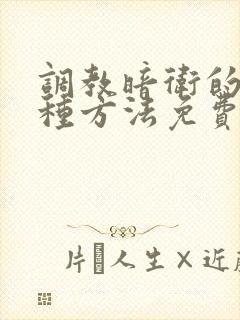 調教暗衛的
種方法免費
片 人生×近